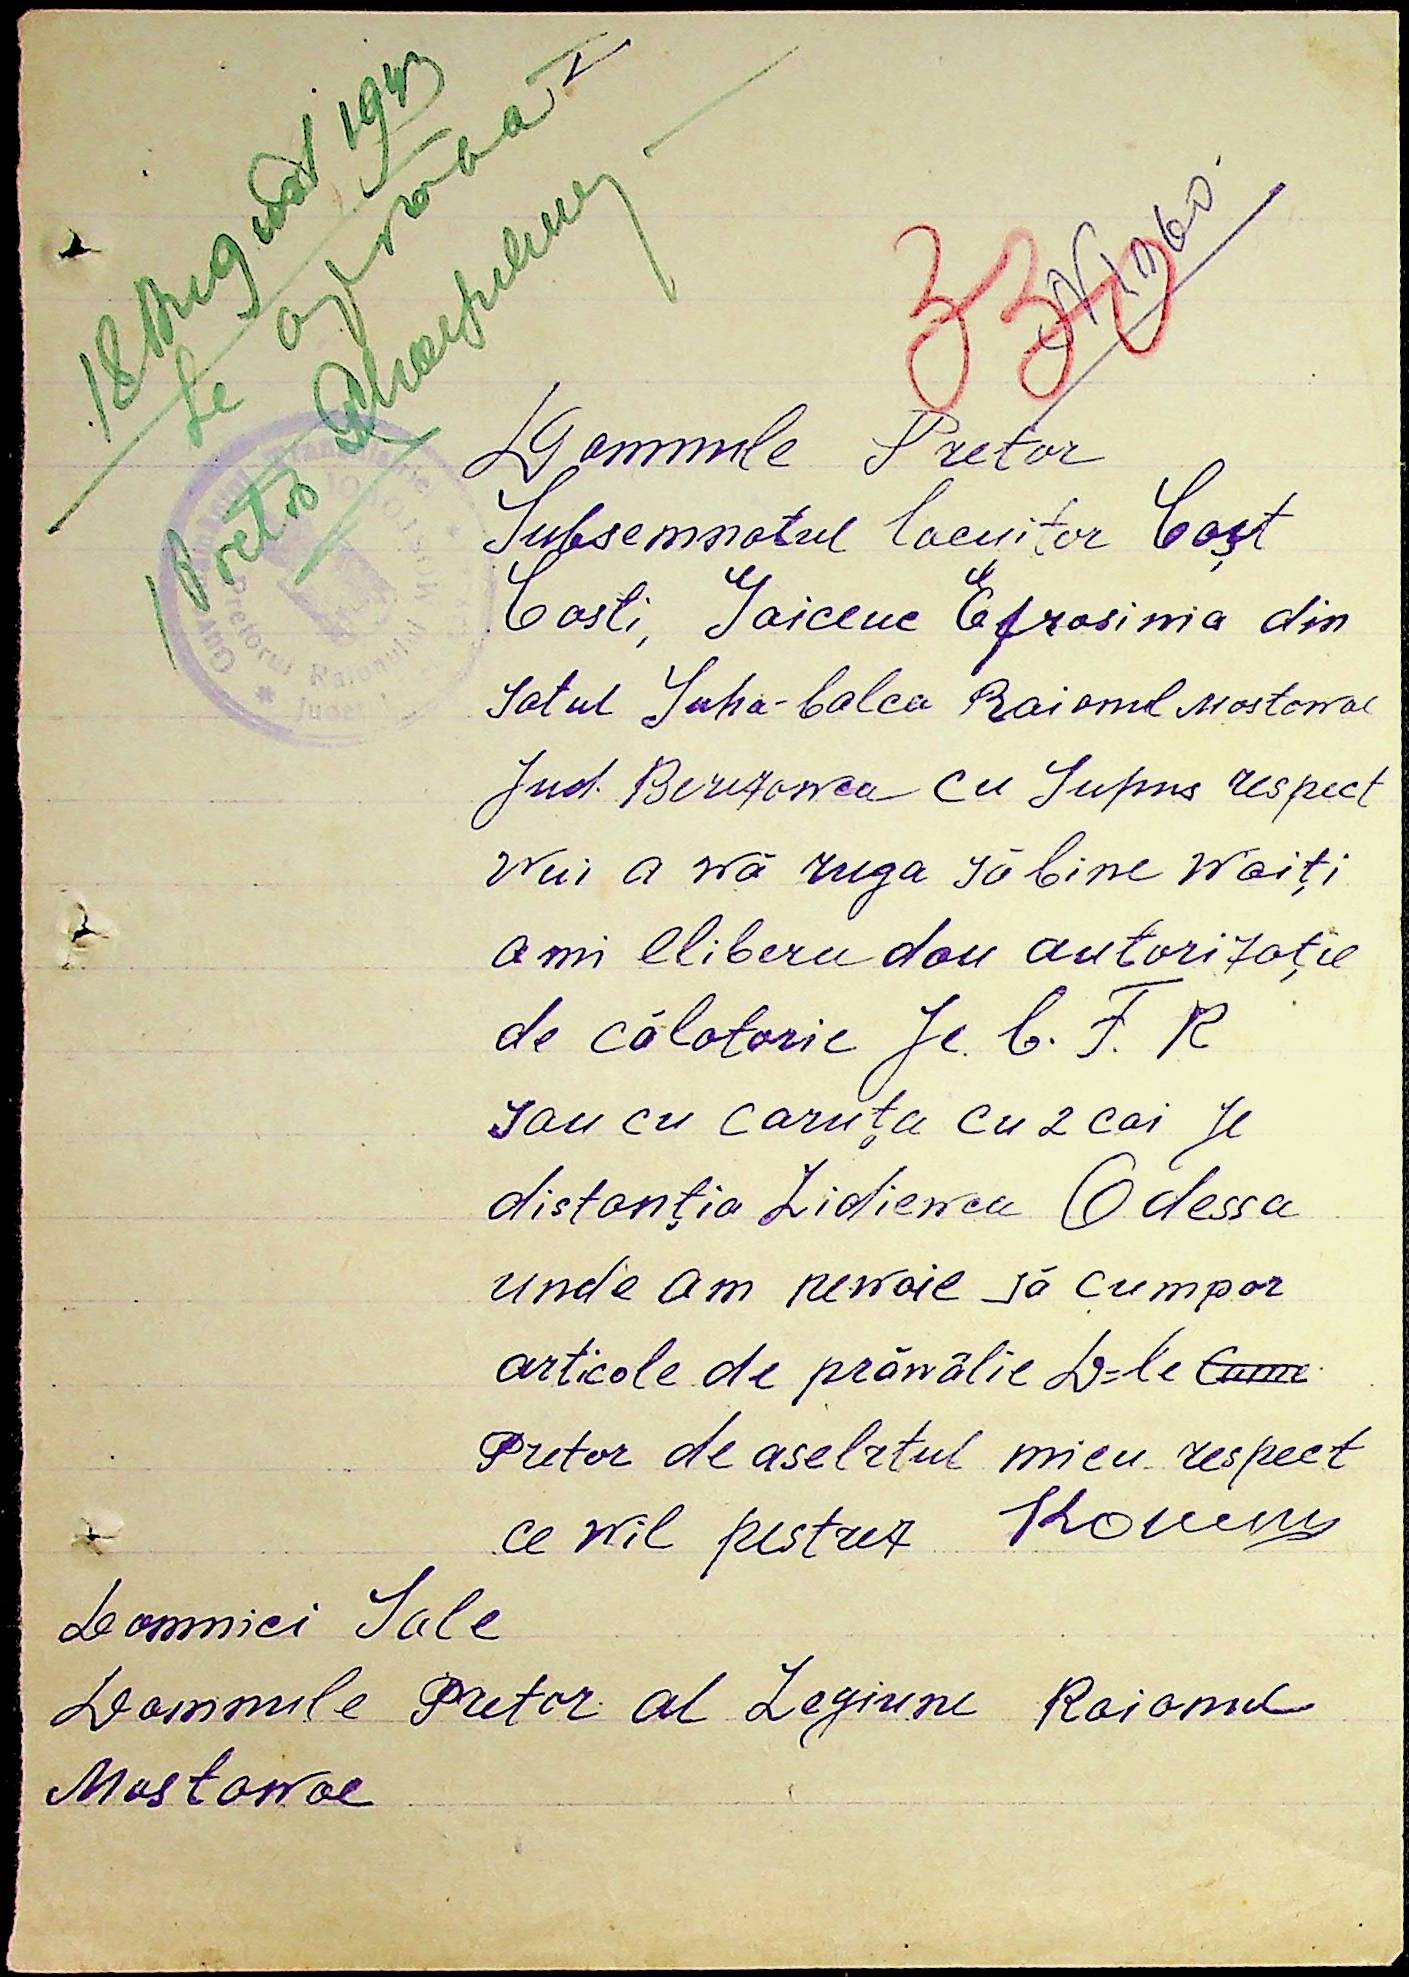 18 August 1943
Se aproba
Pretor
330
N 1360
Guvernământul Transnistriei
Pretorul Raionului
Județ
Domnule Pretor
Subsemnatul lacuitor Coșt
Costi, Saicenc Efrosinia din
satul Suha-balca Raionul Mostowoe
Jud. Berezowca cu Supus respect
Wiu a wă ruga să bine Woiți
ami Elibera dou autorizație
de călătorie pe C. F. R
sau cu caruța cu 2 cai pe
distanția Lidiewca Odessa
unde am newoie să cumpor
articole de prăwălie D=le
Pretor de aselrtul mieu respect
ce wil pestrez
Domniei Sale
Domnule Pretor al Legiune Raionul
Mostowoe